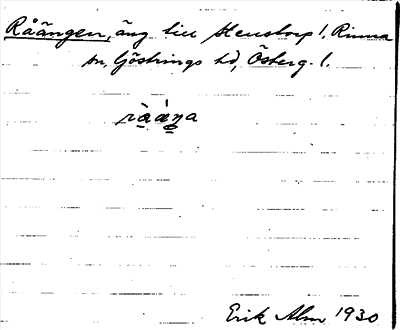 Råängen, äng till Stenstorp 1, Rinna
sn, Göstrings hd, Österg. l.
ràǽŋa
Erik Alm 1930